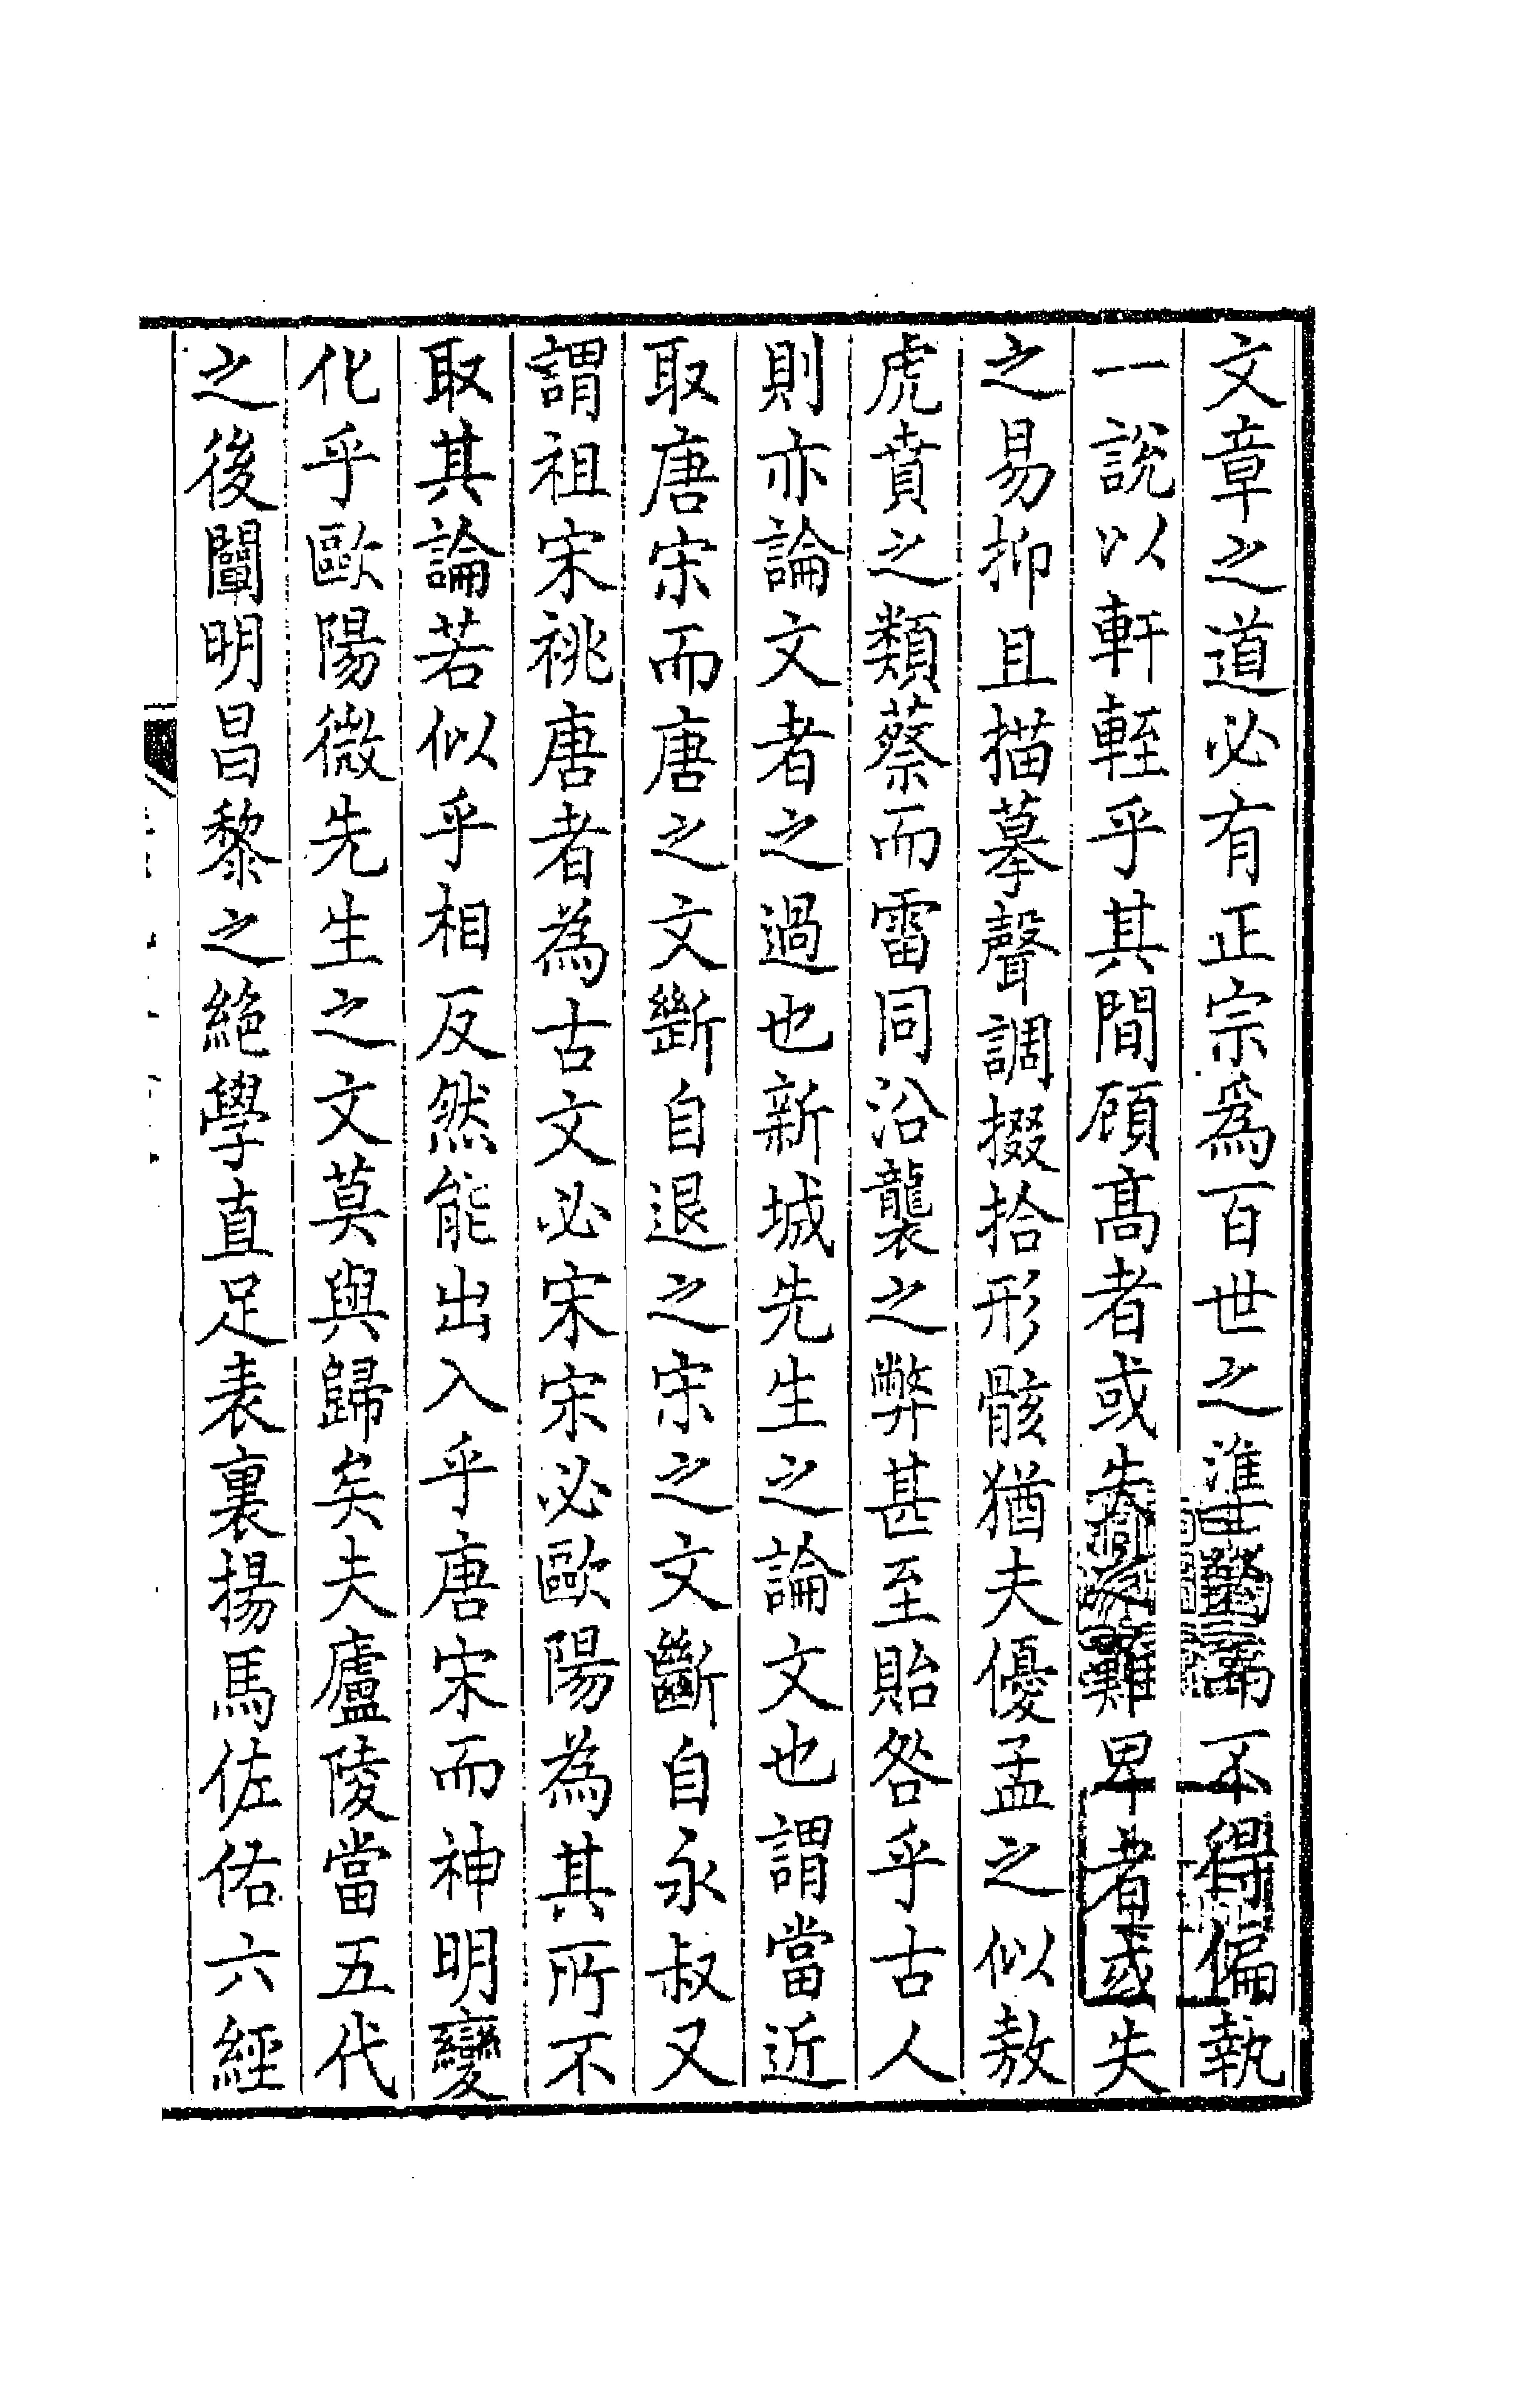 文章之道必有正宗爲百世之準不得偏執
一說以軒輊乎其間顧髙者或失之難卑者或失
之易抑且描摹聲調掇拾形骸猶夫優孟之似敖
虎賁之類蔡而雷同沿襲之弊甚至貽咎乎古人
則亦論文者之過也新城先生之論文也謂當近
取唐宋而唐之文斷自退之宋之文斷自永叔又
謂祖宋祧唐者為古文必宋宋必歐陽為其所不
取其論若似乎相反然能出入乎唐宋而神明變
化乎歐陽微先生之文莫與歸矣夫廬陵當五代
之後闡明昌黎之絶學直足表裏揚馬佐佑六經